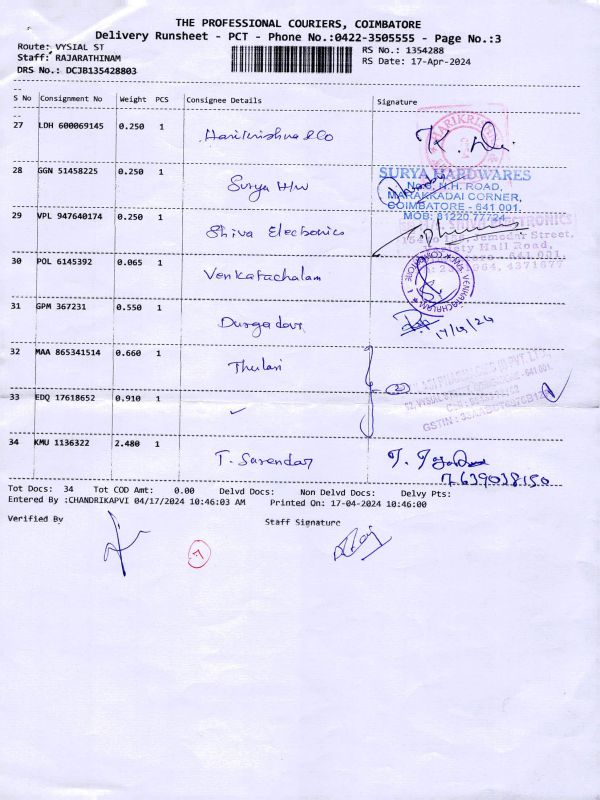 THE PROFESSIONAL COURIERS, COIMBATORE
Delivery Runsheet - PCT - Phone No.:0422-3505555 - Page No.:3
Route: VYSIAL ST
RS No.: 1354288
Staff: RAJARATHINAM
RS Date: 17-Apr-2024
DRS No.: DCJB135428803
S No Consignment No Weight PCS Consignee Details Signature
27 LDH 600069145 0.250 1 Harikrishna & Co
28 GGN 51458225 0.250 1 Surya H/W
SURYA HARDWARES
No.6, N.H. ROAD,
MARAKKADAI CORNER,
COIMBATORE - 641 001.
MOB: 81220 77724
29 VPL 947640174 0.250 1 Shiva Electronics
30 POL 6145392 0.065 1 Venkatachalam
31 GPM 367231 0.550 1 Durgadevi
17/4/24
32 MAA 865341514 0.660 1 Thulasi
(2)
33 EDQ 17618652 0.910 1 ✓
34 KMU 1136322 2.480 1 T. Surendar
7639038150
Tot Docs: 34 Tot COD Amt: 0.00 Delvd Docs: Non Delvd Docs: Delvy Pts:
Entered By :CHANDRIKAPVI 04/17/2024 10:46:03 AM Printed On: 17-04-2024 10:46:00
Verified By Staff Signature
7